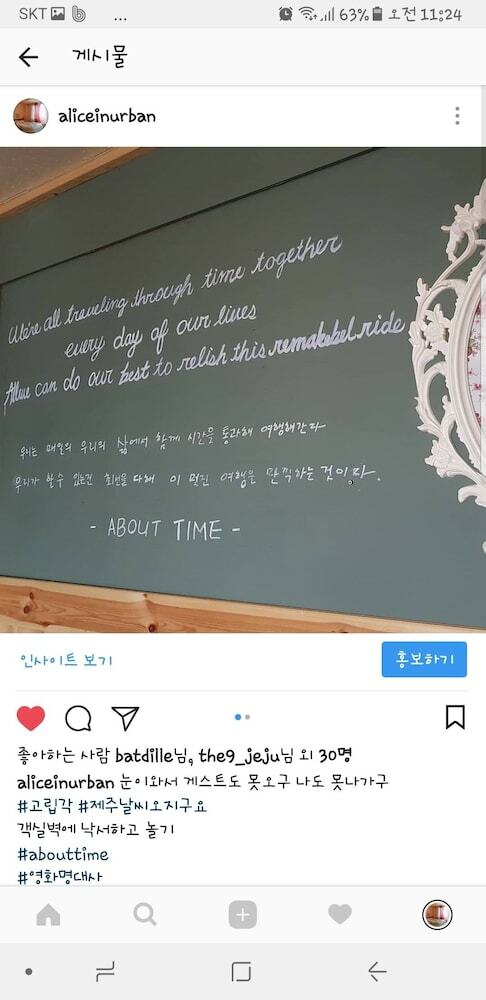 SKT ... 63% 오전 11:24
게시물
aliceinurban
We're all traveling through time together
every day of our lives
All we can do our best to relish this remakabel ride
우리는 매일의 우리의 삶에서 함께 시간을 통과해 여행해간다
우리가 할수 있는건 최선을 다해 이 멋진 여행을 만끽하는 것이다.
- ABOUT TIME -
인사이트 보기
홍보하기
좋아하는 사람 batdille님, the9_jeju님 외 30명
aliceinurban 눈이와서 게스트도 못오구 나도 못나가구
#고립각 #제주날씨오지구요
객실벽에 낙서하고 놀기
#abouttime
#영화명대사